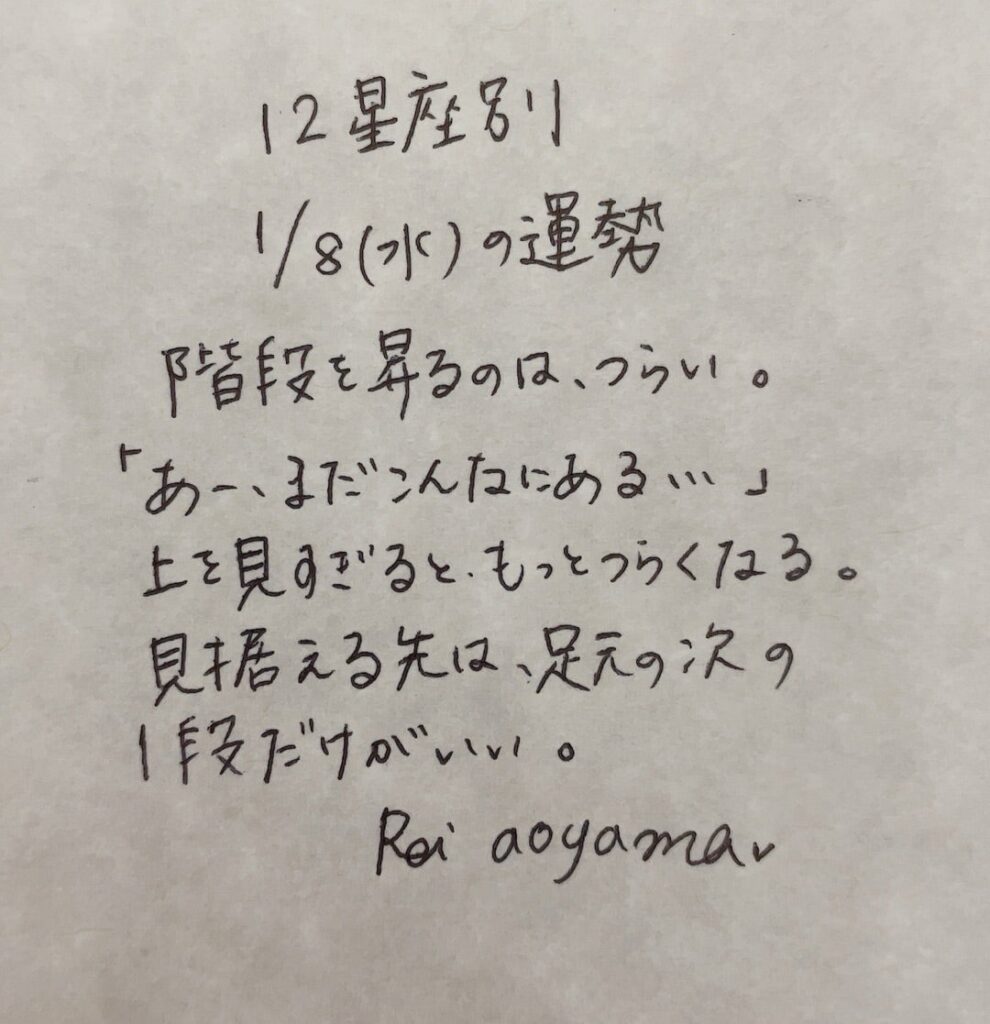 12星座別
1/8(水)の運勢
階段を昇るのは、つらい。
「あー、まだこんなにある…」
上を見すぎると、もっとつらくなる。
見据える先は、足元の次の
1段だけがいい。
Rei aoyama